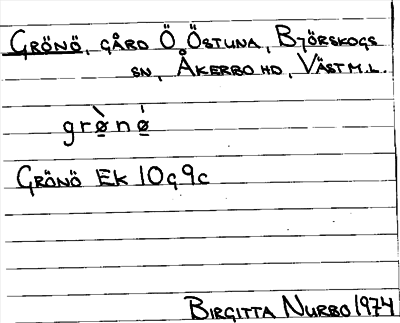 GRÖNÖ, GÅRD Ö ÖSTUNA, BJÖRSKOGS
SN, ÅKERBO HD, VÄSTM.L.
grø̲̀nǿ̲
GRÖNÖ EK 10G9c
BIRGITTA NURBO 1974